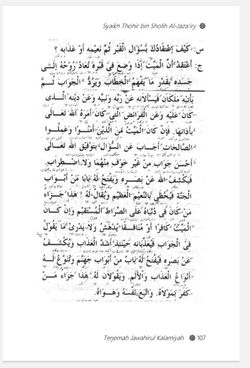 Syaikh Thohir bin Sholih Al-Jaza'iry
س- كَيْفَ إِعْتِقَادُكَ بِسُؤَالِ الْقَبْرِ ثُمَّ نَعِيْمِهِ أَوْ عَذَابِهِ ؟
ج- أَعْتَقِدُ أَنَّ الْمَيِّتَ إِذَا وُضِعَ فِيْ قَبْرِهِ تُعَادُ رُوْحُهُ إِلَى
جَسَدِهِ بِقَدْرِ مَا يَفْهَمُ الْخِطَابَ وَيَرُدُّ الْجَوَابَ ثُمَّ
يَأْتِيْهِ مَلَكَانِ فَيَسْأَلَانِهِ عَنْ رَبِّهِ وَنَبِيِّهِ وَعَنْ دِيْنِهِ الَّذِى
كَانَ عَلَيْهِ وَعَنِ الْفَرَائِضِ الَّتِي كَانَ أَمَرَهُ اللهُ تَعَالَى
بِأَدَائِهَا، فَإِنْ كَانَ الْمَيِّتُ مِنَ الَّذِيْنَ آمَنُوْا وَعَمِلُوا
الصَّالِحَاتِ أَجَابَ عَنِ السُّؤَالِ بِتَوْفِيْقِ اللهِ تَعَالَى
أَحْسَنَ جَوَابٍ مِنْ غَيْرِ خَوْفٍ مِنْهُمَا وَلَا اضْطِرَابٍ.
فَيَكْشِفُ اللهُ عَنْ بَصَرِهِ وَيَفْتَحُ لَهُ بَابًا مِنْ أَبْوَابِ
الْجَنَّةِ فَيَحْظَى بِالنَّعِيْمِ الْعَظِيْمِ وَيُقَالُ لَهُ: هٰذَا جَزَاءُ
مَنْ كَانَ فِيْ دُنْيَاهُ عَلَى الصِّرَاطِ الْمُسْتَقِيْمِ وَإِنْ كَانَ
الْمَيِّتُ كَافِرًا أَوْ مُنَافِقًا يُدْهَشُ وَلَا يَدْرِىْ مَا يَقُوْلُ
فِيْ الْجَوَابِ فَيُعَذِّبَانِهِ حِيْنَئِذٍ أَشَدَّ الْعَذَابِ وَيُكْشَفُ
عَنْ بَصَرِهِ فَيُفْتَحُ لَهُ بَابٌ مِنْ أَبْوَابِ جَهَنَّمَ وَتُنَوَّعُ لَهُ
أَنْوَاعُ الْعَذَابِ وَالْأَلَمِ. وَيَقُوْلَانِ لَهُ: هٰذَا جَزَاءُ مَنْ
كَفَرَ بِمَوْلَاهُ. وَاتَّبَعَ نَفْسَهُ وَهَوَاهُ.
Terjemah Jawahirul Kalamiyah 107